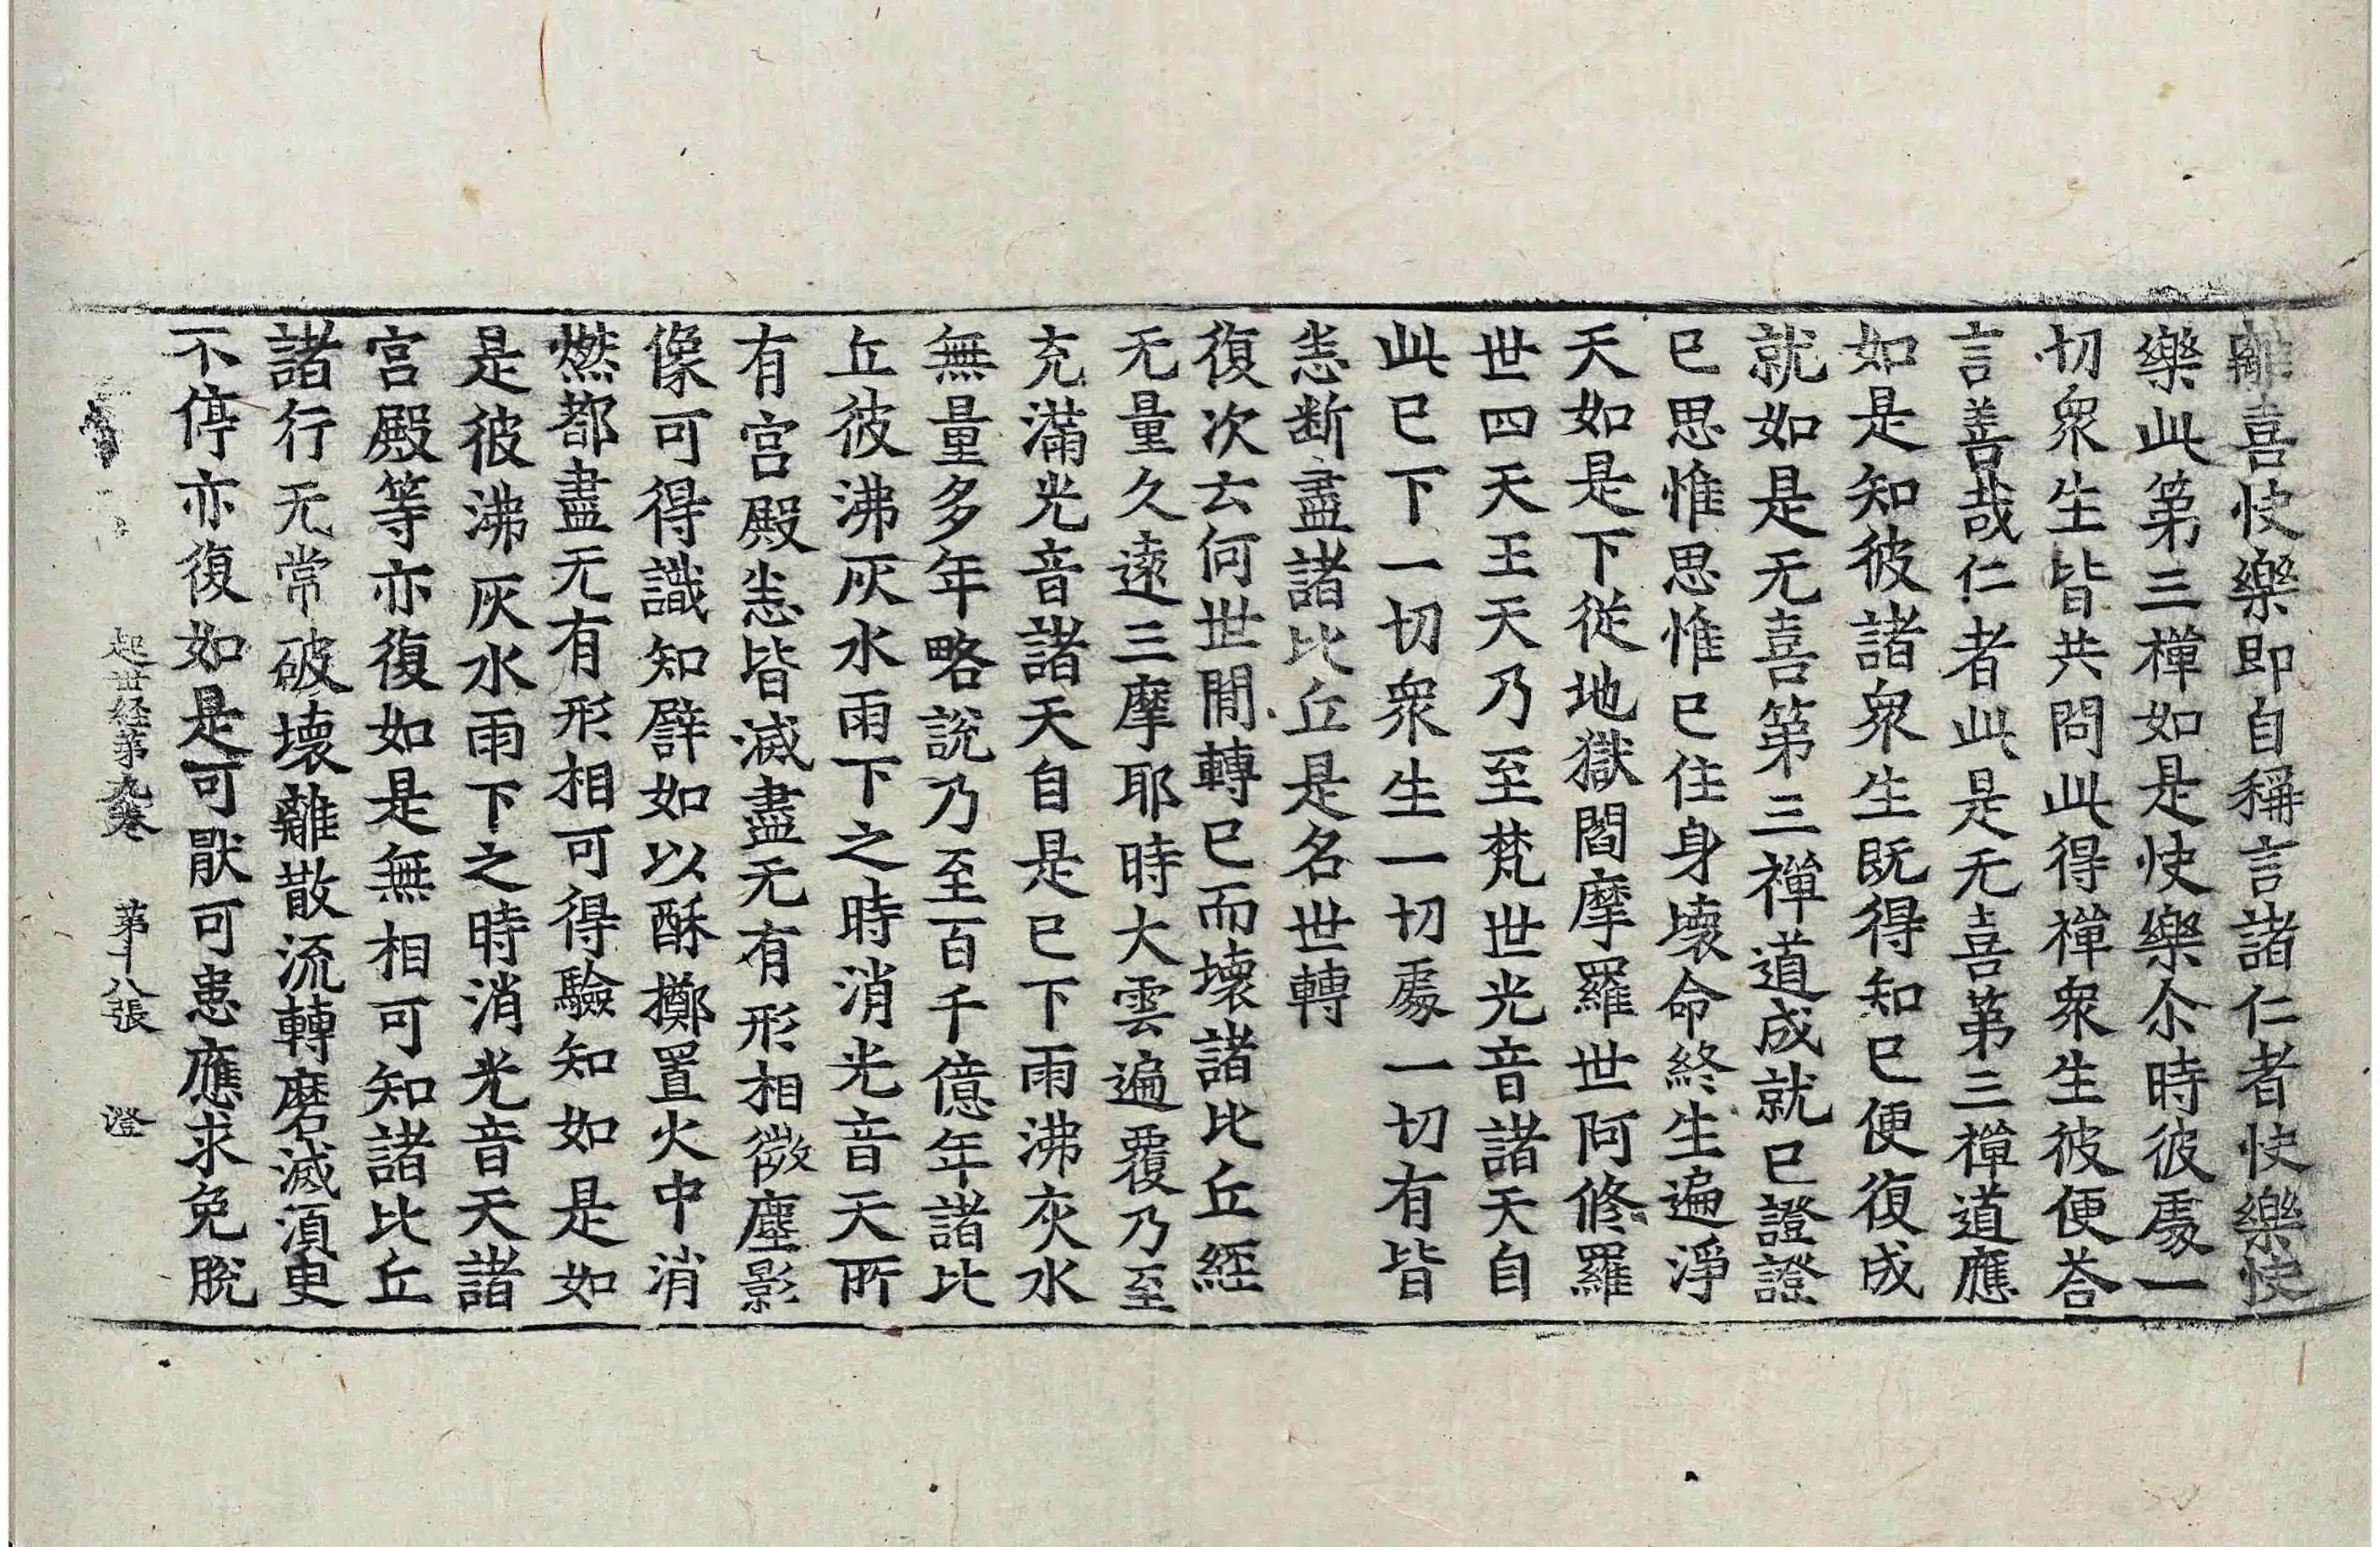 離喜快樂即自稱言諸仁者快樂快
樂此第三禪如是快樂尒時彼處一
切衆生皆共問此得禪衆生彼便荅
言善哉仁者此是无喜第三禪道應
如是知彼諸衆生既得知已便復成
就如是无喜第三禪道成就已證證
已思惟思惟已住身壞命終生遍淨
天如是下從地獄閻摩羅世阿修羅
世四天王天乃至梵世光音諸天自
此已下一切衆生一切處一切有皆
悉斷盡諸比丘是名世轉
復次云何世閒轉已而壞諸比丘經
无量久遠三摩耶時大雲遍覆乃至
充滿光音諸天自是已下雨沸灰水
無量多年略說乃至百千億年諸比
丘彼沸灰水雨下之時消光音天所
有宮殿悉皆滅盡无有形相微塵影
像可得識知譬如以酥擲置火中消
燃都盡无有形相可得驗知如是如
是彼沸灰水雨下之時消光音天諸
宮殿等亦復如是無相可知諸比丘
諸行无常破壞離散流轉磨滅須臾
不停亦復如是可猒可患應求免脫
起世経第九卷 第十八張 澄